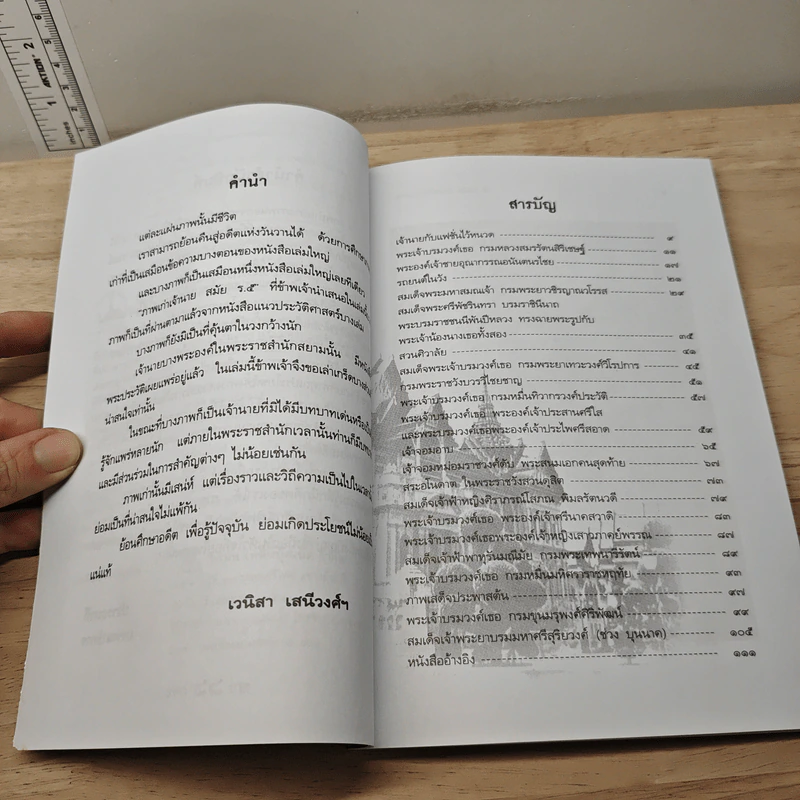 คำนำ
แต่ละแผ่นภาพนั้นมีชีวิต
เราสามารถย้อนคืนสู่อดีตแห่งวันวานได้ ด้วยการศึกษา
เก่าที่เป็นเสมือนข้อความบางตอนของหนังสือเล่มใหญ่
และบางภาพก็เป็นเสมือนหนึ่งหนังสือเล่มใหญ่เลยทีเดียว
"ภาพเก่าเจ้านาย สมัย ร.๕" ที่ข้าพเจ้านำเสนอในเล่มนี้
ภาพก็เป็นที่ผ่านตามาแล้วจากหนังสือแนวประวัติศาสตร์บางเล่ม
บางภาพก็ยังมิเป็นที่คุ้นตาในวงกว้างนัก
เจ้านายบางพระองค์ในพระราชสำนักสยามนั้น
พระประวัติเผยแพร่อยู่แล้ว ในเล่มนี้ข้าพเจ้าจึงขอเล่าเกร็ดบาง
น่าสนใจเท่านั้น
ในขณะที่บางภาพก็เป็นเจ้านายที่มิได้มีบทบาทเด่นหรือ
รู้จักแพร่หลายนัก แต่ภายในพระราชสำนักเวลานั้นท่านก็มี
และมีส่วนร่วมในการสำคัญต่างๆ ไม่น้อยเช่นกัน
ภาพเก่านั้นมีเสน่ห์ แต่เรื่องราวและวิถีความเป็นไปใน
ย่อมเป็นที่น่าสนใจไม่แพ้กัน
ย้อนศึกษาอดีต เพื่อรู้ปัจจุบัน ย่อมเกิดประโยชน์ไม่น้อย
แน่แท้
เวนิสา เสนีวงศ์ฯ
สารบัญ
เจ้านายกับแฟชั่นไว้หนวด ๙
พระเจ้าบรมวงศ์เธอ กรมหลวงสมรรัตนสิริเชษฐ์ ๑๑
พระองค์เจ้าชายอุณากรรณอนันตนรไชย ๑๗
รถยนต์ในวัง ๒๑
สมเด็จพระมหาสมณเจ้า กรมพระยาวชิรญาณวโรรส ๒๙
สมเด็จพระศรีพัชรินทรา บรมราชินีนาถ
พระบรมราชชนนีพันปีหลวง ทรงฉายพระรูปกับ
พระเจ้าน้องนางเธอทั้งสอง ๓๕
สวนศิวาลัย ๔๑
สมเด็จพระเจ้าบรมวงศ์เธอ กรมพระยาเทวะวงศ์วโรปการ ๔๕
กรมพระราชวังบวรวิไชยชาญ ๕๑
พระเจ้าบรมวงศ์เธอ กรมหมื่นทิวากรวงศ์ประวัติ ๕๗
พระเจ้าบรมวงศ์เธอ พระองค์เจ้าประสานศรีใส
และพระบรมวงศ์เธอพระองค์เจ้าประไพศรีสอาด ๕๙
เจ้าจอมอาบ ๖๕
เจ้าจอมหม่อมราชวงศ์ดับ พระสนมเอกคนสุดท้าย ๖๗
สระอโนดาต ในพระราชวังสวนดุสิต ๗๓
สมเด็จเจ้าฟ้าหญิงศิราภรณ์โสภณ พิมลรัตนวดี ๗๙
พระเจ้าบรมวงศ์เธอ พระองค์เจ้าศรีนาคสวาดิ ๘๓
พระเจ้าบรมวงศ์เธอพระองค์เจ้าหญิงเสาวภาคย์พรรณ ๘๗
สมเด็จเจ้าฟ้าพาหุรัดมณีมัย กรมพระเทพนารีรัตน์ ๘๙
พระเจ้าบรมวงศ์เธอ กรมหมื่นมหิศวรราชหฤทัย ๙๓
ภาพเสด็จประพาสต้น ๙๗
พระเจ้าบรมวงศ์เธอ กรมขุนมรุพงศ์ศิริพัฒน์ ๙๙
สมเด็จเจ้าพระยาบรมมหาศรีสุริยวงศ์ (ช่วง บุนนาค) ๑๐๕
หนังสืออ้างอิง ๑๑๑